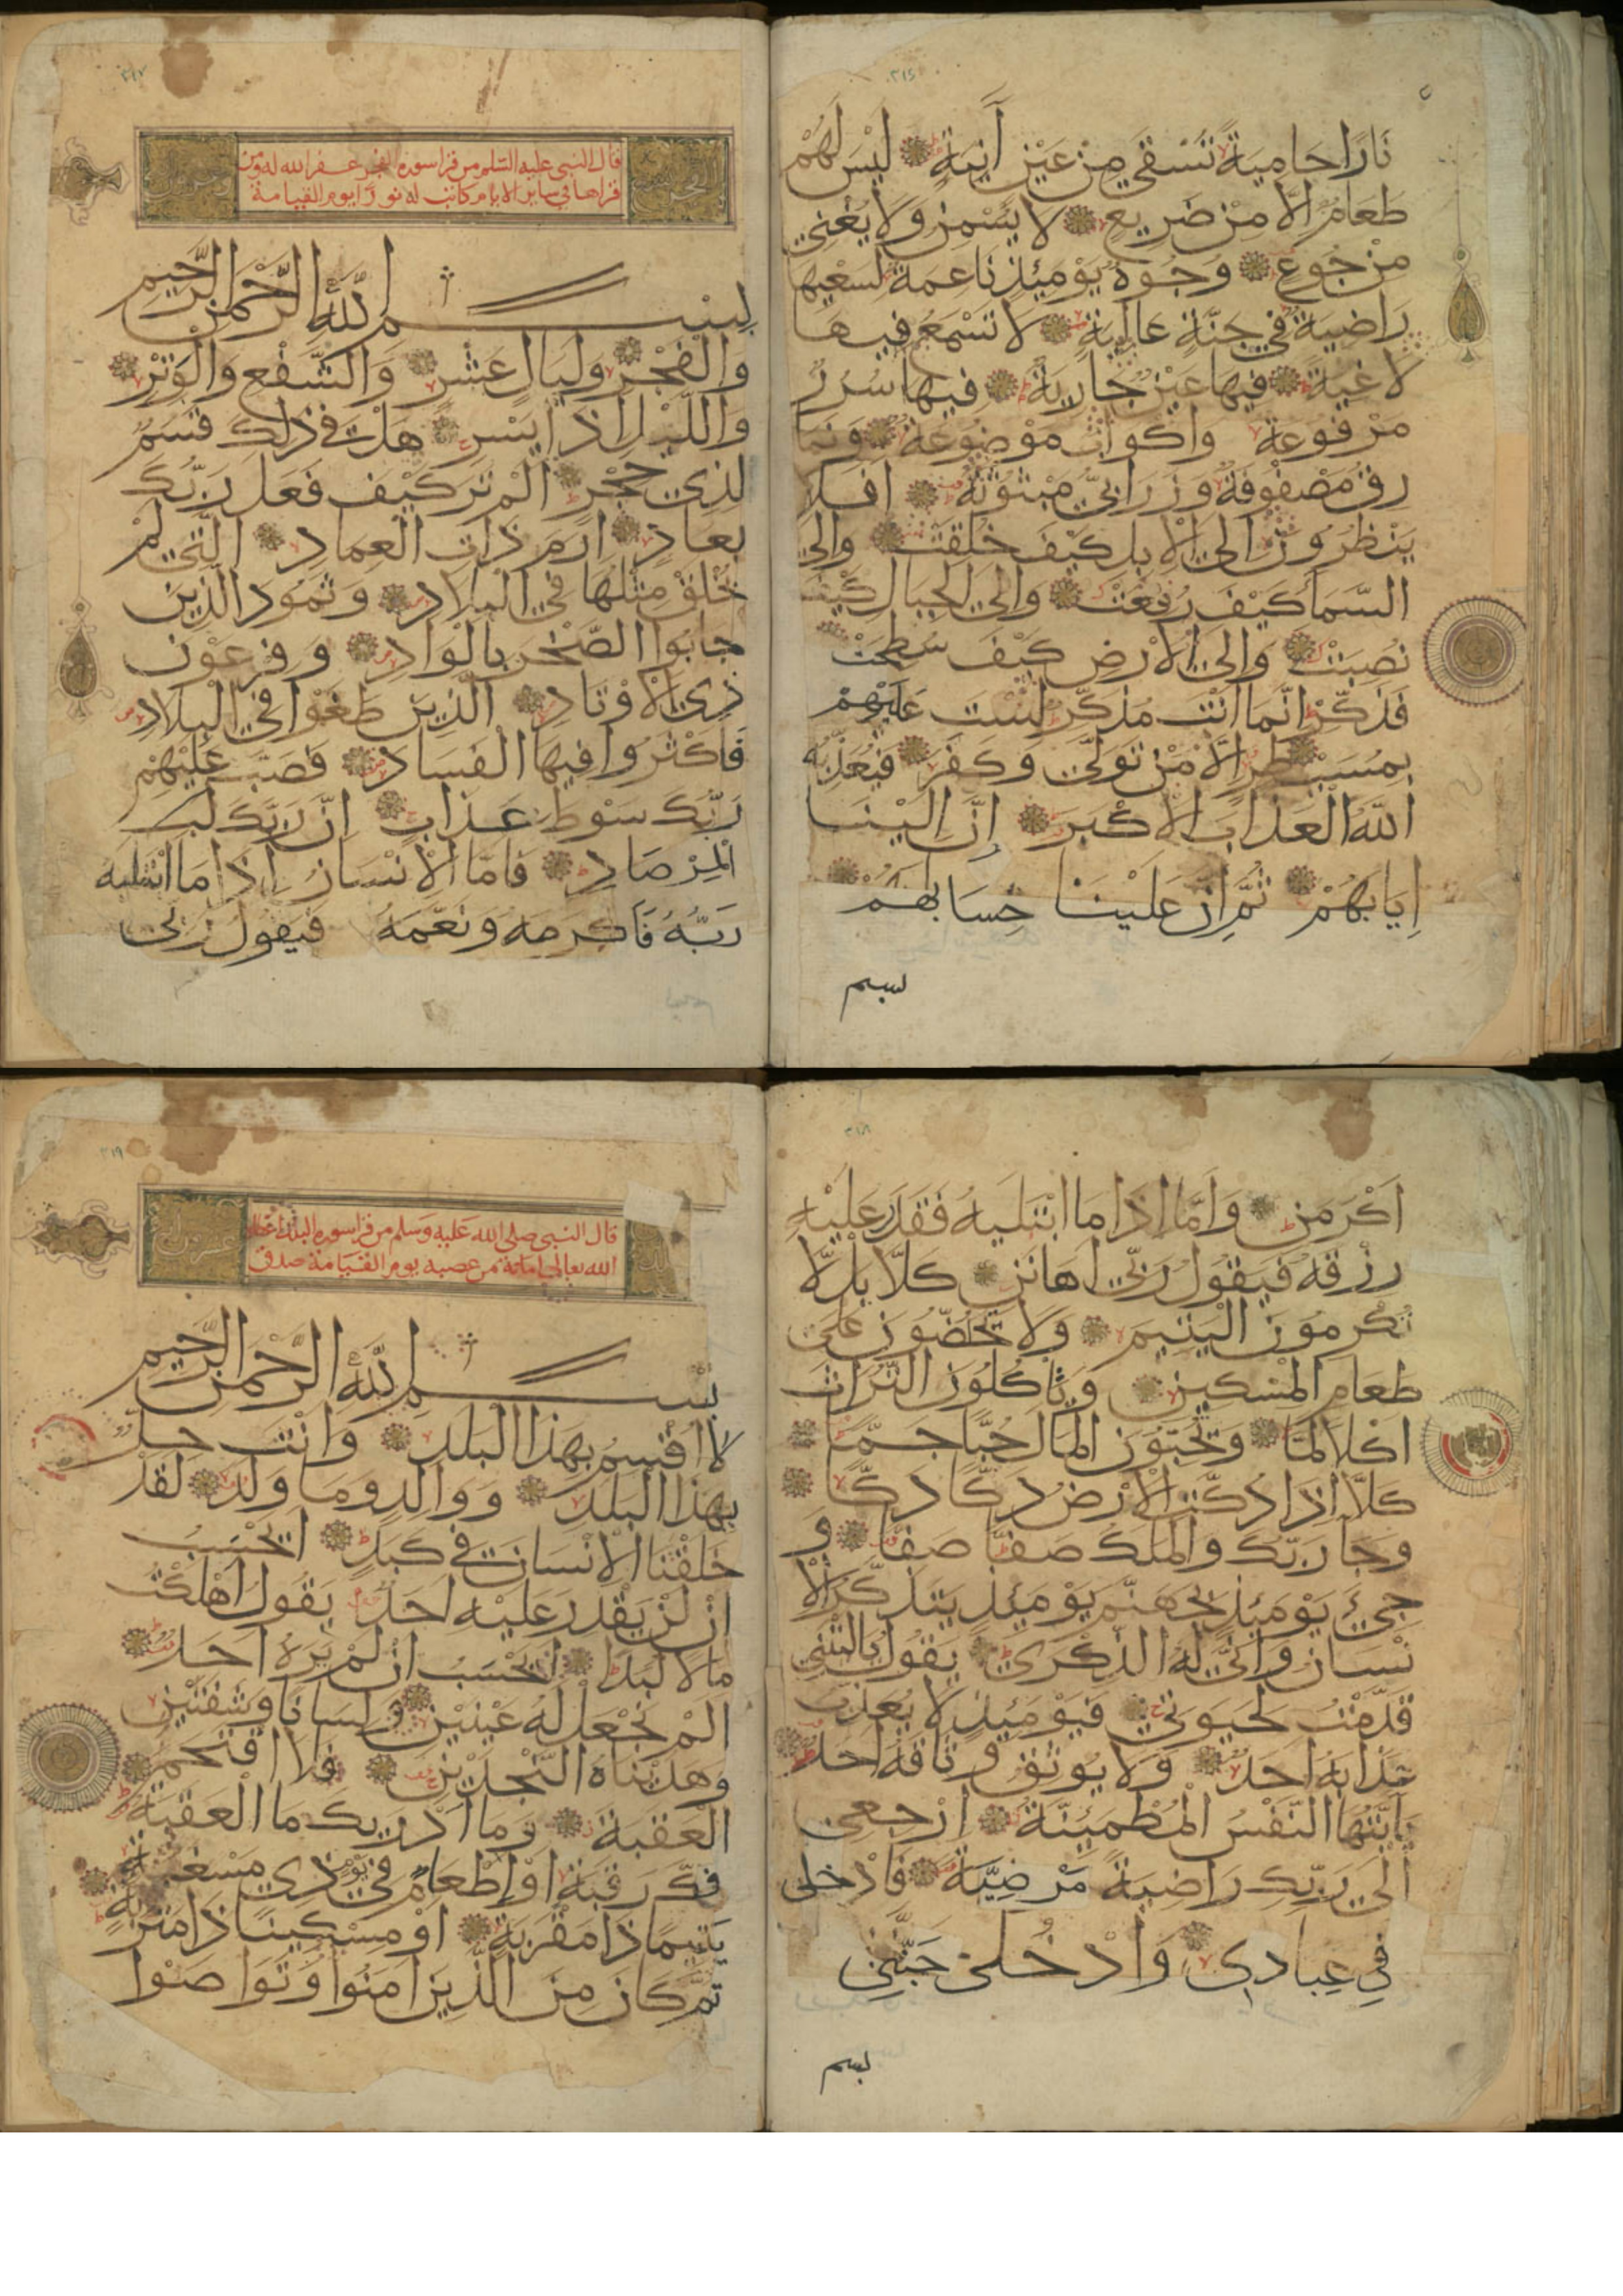 نَارًا حَامِيَةً تُسْقَى مِنْ عَيْنٍ آنِيَةٍ لَيْسَ لَهُمْ
طَعَامٌ إِلَّا مِنْ ضَرِيعٍ لَا يُسْمِنُ وَلَا يُغْنِي
مِنْ جُوعٍ وُجُوهٌ يَوْمَئِذٍ نَاعِمَةٌ لِسَعْيِهَا
رَاضِيَةٌ فِي جَنَّةٍ عَالِيَةٍ لَا تَسْمَعُ فِيهَا
لَاغِيَةً فِيهَا عَيْنٌ جَارِيَةٌ فِيهَا سُرُرٌ
مَرْفُوعَةٌ وَأَكْوَابٌ مَوْضُوعَةٌ وَنَمَا
رِقُ مَصْفُوفَةٌ وَزَرَابِيُّ مَبْثُوثَةٌ أَفَلَا
يَنْظُرُونَ إِلَى الْإِبِلِ كَيْفَ خُلِقَتْ وَإِلَى
السَّمَاءِ كَيْفَ رُفِعَتْ وَإِلَى الْجِبَالِ كَيْفَ
نُصِبَتْ وَإِلَى الْأَرْضِ كَيْفَ سُطِحَتْ
فَذَكِّرْ إِنَّمَا أَنْتَ مُذَكِّرٌ لَسْتَ عَلَيْهِمْ
بِمُسَيْطِرٍ إِلَّا مَنْ تَوَلَّى وَكَفَرَ فَيُعَذِّبُهُ
اللَّهُ الْعَذَابَ الْأَكْبَرَ إِنَّ إِلَيْنَا
إِيَابَهُمْ ثُمَّ إِنَّ عَلَيْنَا حِسَابَهُمْ
بسم
٣١٧
قال النبي عليه السلم من قرا سورة الفجر غفر الله له ومن
قراها في ساير الايام كانت له نورًا يوم القيامة
بِسْمِ اللَّهِ الرَّحْمَنِ الرَّحِيمِ
وَالْفَجْرِ وَلَيَالٍ عَشْرٍ وَالشَّفْعِ وَالْوَتْرِ
وَاللَّيْلِ إِذَا يَسْرِ هَلْ فِي ذَلِكَ قَسَمٌ
لِذِي حِجْرٍ أَلَمْ تَرَ كَيْفَ فَعَلَ رَبُّكَ
بِعَادٍ إِرَمَ ذَاتِ الْعِمَادِ الَّتِي لَمْ
يُخْلَقْ مِثْلُهَا فِي الْبِلَادِ وَثَمُودَ الَّذِينَ
جَابُوا الصَّخْرَ بِالْوَادِ وَفِرْعَوْنَ
ذِي الْأَوْتَادِ الَّذِينَ طَغَوْا فِي الْبِلَادِ
فَأَكْثَرُوا فِيهَا الْفَسَادَ فَصَبَّ عَلَيْهِمْ
رَبُّكَ سَوْطَ عَذَابٍ إِنَّ رَبَّكَ لَبِ
الْمِرْصَادِ فَأَمَّا الْإِنْسَانُ إِذَا مَا ابْتَلَيهُ
رَبُّهُ فَأَكْرَمَهُ وَنَعَّمَهُ فَيَقُولُ رَبِّي
٣١٨
أَكْرَمَنِ وَأَمَّا إِذَا مَا ابْتَلَيهُ فَقَدَرَ عَلَيْهِ
رِزْقَهُ فَيَقُولُ رَبِّي أَهَانَنِ كَلَّا بَلْ لَا
تُكْرِمُونَ الْيَتِيمَ وَلَا تَحُضُّونَ عَلَى
طَعَامِ الْمِسْكِينِ وَتَأْكُلُونَ التُّرَاثَ
أَكْلًا لَمًّا وَتُحِبُّونَ الْمَالَ حُبًّا جَمًّا
كَلَّا إِذَا دُكَّتِ الْأَرْضُ دَكًّا دَكًّا
وَجَا رَبُّكَ وَالْمَلَكُ صَفًّا صَفًّا وَ
جِيءَ يَوْمَئِذٍ بِجَهَنَّمَ يَوْمَئِذٍ يَتَذَكَّرُ الْإِ
نْسَانُ وَأَنَّى لَهُ الذِّكْرَى يَقُولُ يَا لَيْتَنِي
قَدَّمْتُ لِحَيَوتِي فَيَوْمَئِذٍ لَا يُعَذِّبُ
عَذَابَهُ أَحَدٌ وَلَا يُوثِقُ وَثَاقَهُ أَحَدٌ
يَا أَيَّتُهَا النَّفْسُ الْمُطْمَئِنَّةُ ارْجِعِي
إِلَى رَبِّكِ رَاضِيَةً مَرْضِيَّةً فَادْخُلِي
فِي عِبَادِي وَادْخُلِي جَنَّتِي
بسم
٣١٩
قال النبي صلى الله عليه وسلم من قرا سورة البلد اعطاه
الله تعالى امانة من غضبه يوم القيامة صدق
بِسْمِ اللَّهِ الرَّحْمَنِ الرَّحِيمِ
لَا أُقْسِمُ بِهَذَا الْبَلَدِ وَأَنْتَ حِلٌّ
بِهَذَا الْبَلَدِ وَوَالِدٍ وَمَا وَلَدَ لَقَدْ
خَلَقْنَا الْإِنْسَانَ فِي كَبَدٍ أَيَحْسَبُ
أَنْ لَنْ يَقْدِرَ عَلَيْهِ أَحَدٌ يَقُولُ أَهْلَكْتُ
مَالًا لُبَدًا أَيَحْسَبُ أَنْ لَمْ يَرَهُ أَحَدٌ
أَلَمْ نَجْعَلْ لَهُ عَيْنَيْنِ وَلِسَانًا وَشَفَتَيْنِ
وَهَدَيْنَاهُ النَّجْدَيْنِ فَلَا اقْتَحَمَ
الْعَقَبَةَ وَمَا أَدْرَيكَ مَا الْعَقَبَةُ
فَكُّ رَقَبَةٍ أَوْ إِطْعَامٌ فِي يَوْمٍ ذِي مَسْغَبَةٍ
يَتِيمًا ذَا مَقْرَبَةٍ أَوْ مِسْكِينًا ذَا مَتْرَبَةٍ
ثُمَّ كَانَ مِنَ الَّذِينَ آمَنُوا وَتَوَاصَوْا